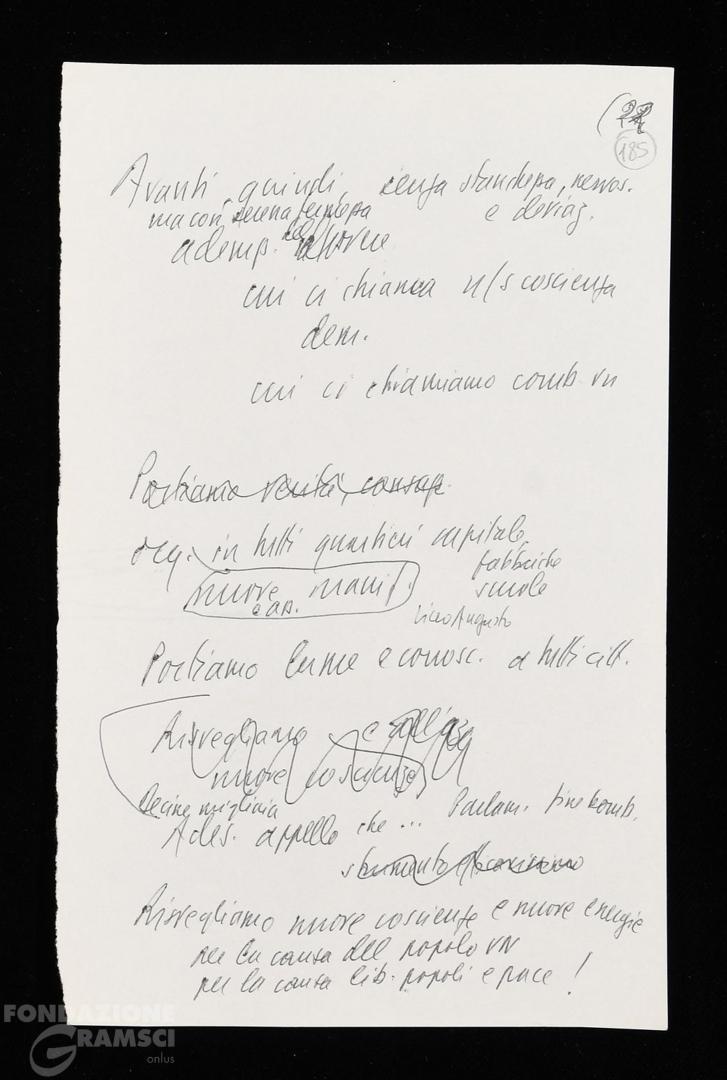 (22
185
Avanti, quindi, senza stanchezza, nervos.
ma con serena fermezza e deviaz.
ademp. dovere
cui ci chiama n/s coscienza
dem.
cui ci chiamiamo comb. vn
Portiamo verità, consap.
org. in tutti quartieri capitale,
fabbriche
nuove manif. scuole
e ass. Liceo Augusto
Portiamo lume e conosc. a tutti citt.
Risvegliamo e
nuove coscienze
Decine migliaia
Ades. appello che ... Parlam. fine bomb.
strumento
Risvegliamo nuove coscienze e nuove energie
per la causa del popolo vn
per la causa lib. popoli e pace!
FONDAZIONE
GRAMSCI
onlus